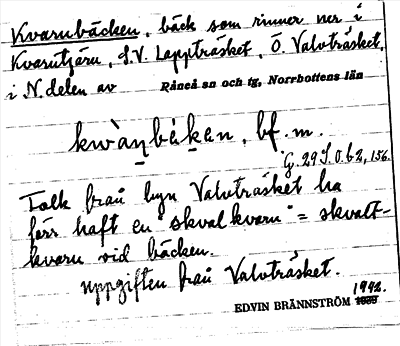 Kvarnbäcken, bäck som rinner ner i
Kvarntjärn, S.V. Lappträsket, Ö. Valvträsket,
i N. delen av Råneå sn och tg, Norrbottens län
kwàṇbèḳen, bf. m.
G. 29 J. 0. 62, 156.
Folk från byn Valvträsket ha
förr haft en "skvalkvarn" = skvalt-
kvarn vid bäcken.
Uppgiften från Valvträsket.
1942.
EDVIN BRÄNNSTRÖM 1939